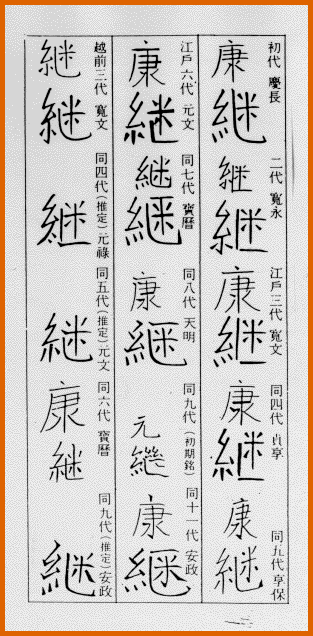 初代 慶長
康継
二代 寛永
継継
江戸三代 寛文
康継
同四代 貞享
康継
同五代 享保
康継
江戸六代 元文
康継
同七代 寳暦
継継
同八代 天明
康継
同九代(初期銘)
元継
同十一代 安政
康継
越前三代 寛文
継継
同四代(推定)元祿
継
同五代(推定)元文
継
同六代 寳暦
康継
同九代(推定)安政
継